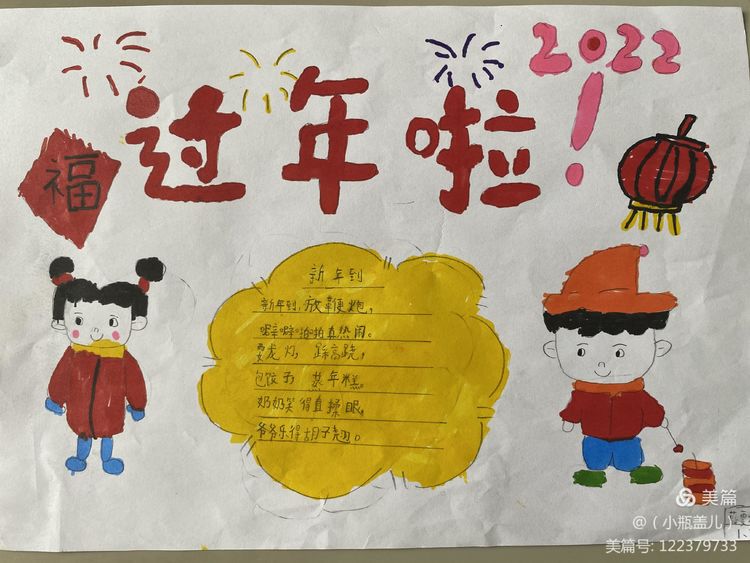 2022
过年啦！
福
新年到
新年到，放鞭炮，
噼噼啪啪真热闹。
耍龙灯，踩高跷，
包饺子 蒸年糕。
奶奶笑得直揉眼，
爷爷乐得胡子翘。
美篇
@（小瓶盖儿）
美篇号: 122379733